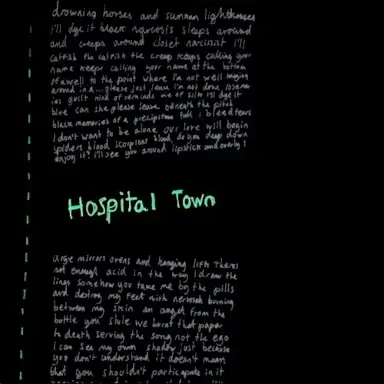 drowning horses and summer lighthouses
i'll dge it black necrosis sleeps around
and creeps around closet narcissist i'll
catfish the catfish the creep keeps calling your
name keeps calling your name at the bottom
of a well to the point where i'm not well
around in a... please just leave i'm not done
guilt kind of reminds me of silk i'll dge it
blue can she please leave beneath the pitch
black memories of a precipitous fall i bleed tears
i don't want to be alone our love will begin
spiders blood scorpions blood do you deep down
enjoy it? i'll see you around lipstick and
Hospital Town
mirrors ovens and hanging lifts theres
not enough acid in the way i draw the
lines somehow you take me by the pills
and destroy my feet with nervosa burning
between my skin an angel from the
bottle you stole we burnt that paper
to death serving the song not the ego
i can see my own shadow just because
you don't understand it doesn't mean
that you shouldn't participate in it